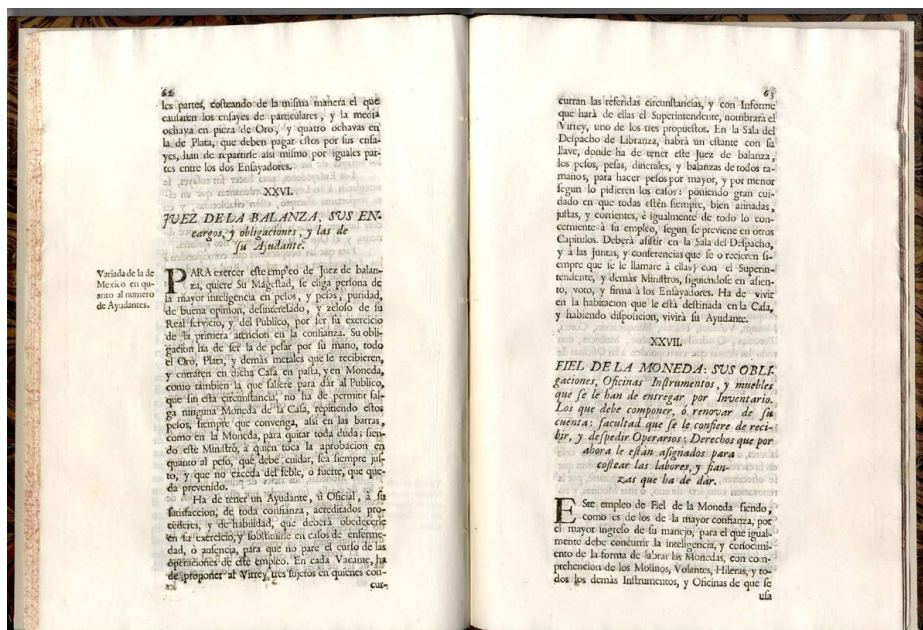 62
les partes, costeando de la misma manera el que
causaren los ensayes de particulares, y la media
ochava en pieza de Oro, y quatro ochavas en
la de Plata, que deben pagar estos por sus ensa-
yes, han de repartirse asi mismo por iguales par-
tes entre los dos Ensayadores.
XXVI.
JUEZ DE LA BALANZA, SUS EN-
cargos, y obligaciones, y las de
su Ayudante.
Variada de la de
Mexico en qu-
anto al numero
de Ayudantes.
PARA exercer este empleo de Juez de balan-
za, quiere Su Magestad, se elija persona de
la mayor inteligencia en pesos, y pesas, puridad,
de buena opinion, desinteresado, y zeloso de su
Real servicio, y del Publico, por ser su exercicio
de la primera atencion en la confianza. Su obli-
gacion ha de ser la de pesar por su mano, todo
el Oro, Plata, y demàs metales que se recibieren,
y entraren en dicha Casa en pasta, y en Moneda,
como tambien la que saliere para dàr al Publico,
que sin esta circunstancia, no ha de permitir sal-
ga ninguna Moneda de la Casa, repitiendo estos
pesos, siempre que convenga, asi en las barras,
como en la Moneda, para quitar toda duda; sien-
do este Ministro, à quien toca la aprobacion en
quanto al peso, que debe cuidar, sea siempre jus-
to, y que no exceda del feble, ò fuerte, que que-
da prevenido.
Ha de tener un Ayudante, ù Oficial, à su
satisfaccion, de toda confianza, acreditados pro-
cederes, y de habilidad, que deberà obedecerle
en su exercicio, y sobstituirle en casos de enferme-
dad, ò ausencia, para que no pare el curso de las
operaciones de este empleo. En cada Vacante, ha
de proponer al Virrey tres sujetos en quienes con-
cur-
63
curran las referidas circunstancias, y con Informe
que harà de ellas el Superintendente, nombrarà el
Virrey, uno de los tres propuestos. En la Sala del
Despacho de Libranza, habrà un estante con su
llave, donde ha de tener este Juez de balanza,
los pesos, pesas, dinerales, y balanzas de todos ta-
maños, para hacer pesos por mayor, y por menor
segun lo pidieren los casos: poniendo gran cui-
dado en que todas estèn siempre, bien afinadas,
justas, y corrientes, è igualmente de todo lo con-
cerniente à su empleo, segun se previene en otros
Capitulos. Deberà asistir en la Sala del Despacho,
y à las Juntas, y conferencias que se ofrecieren si-
empre que se le llamare à ellas; con el Superin-
tendente, y demàs Ministros, siguiendose en asien-
to, voto, y firma à los Ensayadores. Ha de vivir
en la habitacion que le està destinada en la Casa,
y habiendo disposicion, vivirà su Ayudante.
XXVII.
FIEL DE LA MONEDA: SUS OBLI-
gaciones, Oficinas Instrumentos, y muebles
que se le han de entregar por Inventario.
Los que debe componer, ò renovar de su
cuenta: facultad que se le confiere de reci-
bir, y despedir Operarios: Derechos que por
ahora le estàn asignados para
costear las labores, y fian-
zas que ha de dar.
ESte empleo de Fiel de la Moneda siendo,
como es de los de la mayor confianza, por
el mayor ingreso de su manejo; para el que igual-
mente debe concurrir la inteligencia, y conocimi-
ento de la forma de labrar las Monedas, con com-
prehencion de los Molinos, Volantes, Hileras, y to-
dos los demàs Instrumentos, y Oficinas de que se
usa